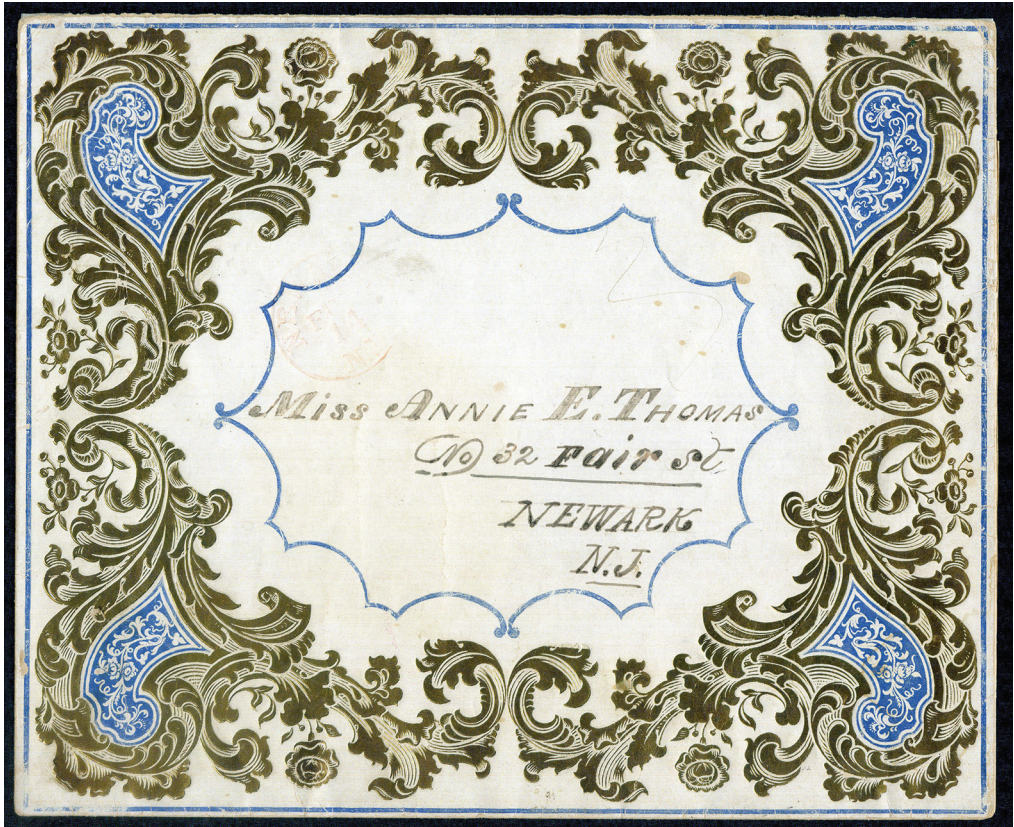 Miss Annie E. Thomas
No 32 Fair St.
NEWARK
N.J.